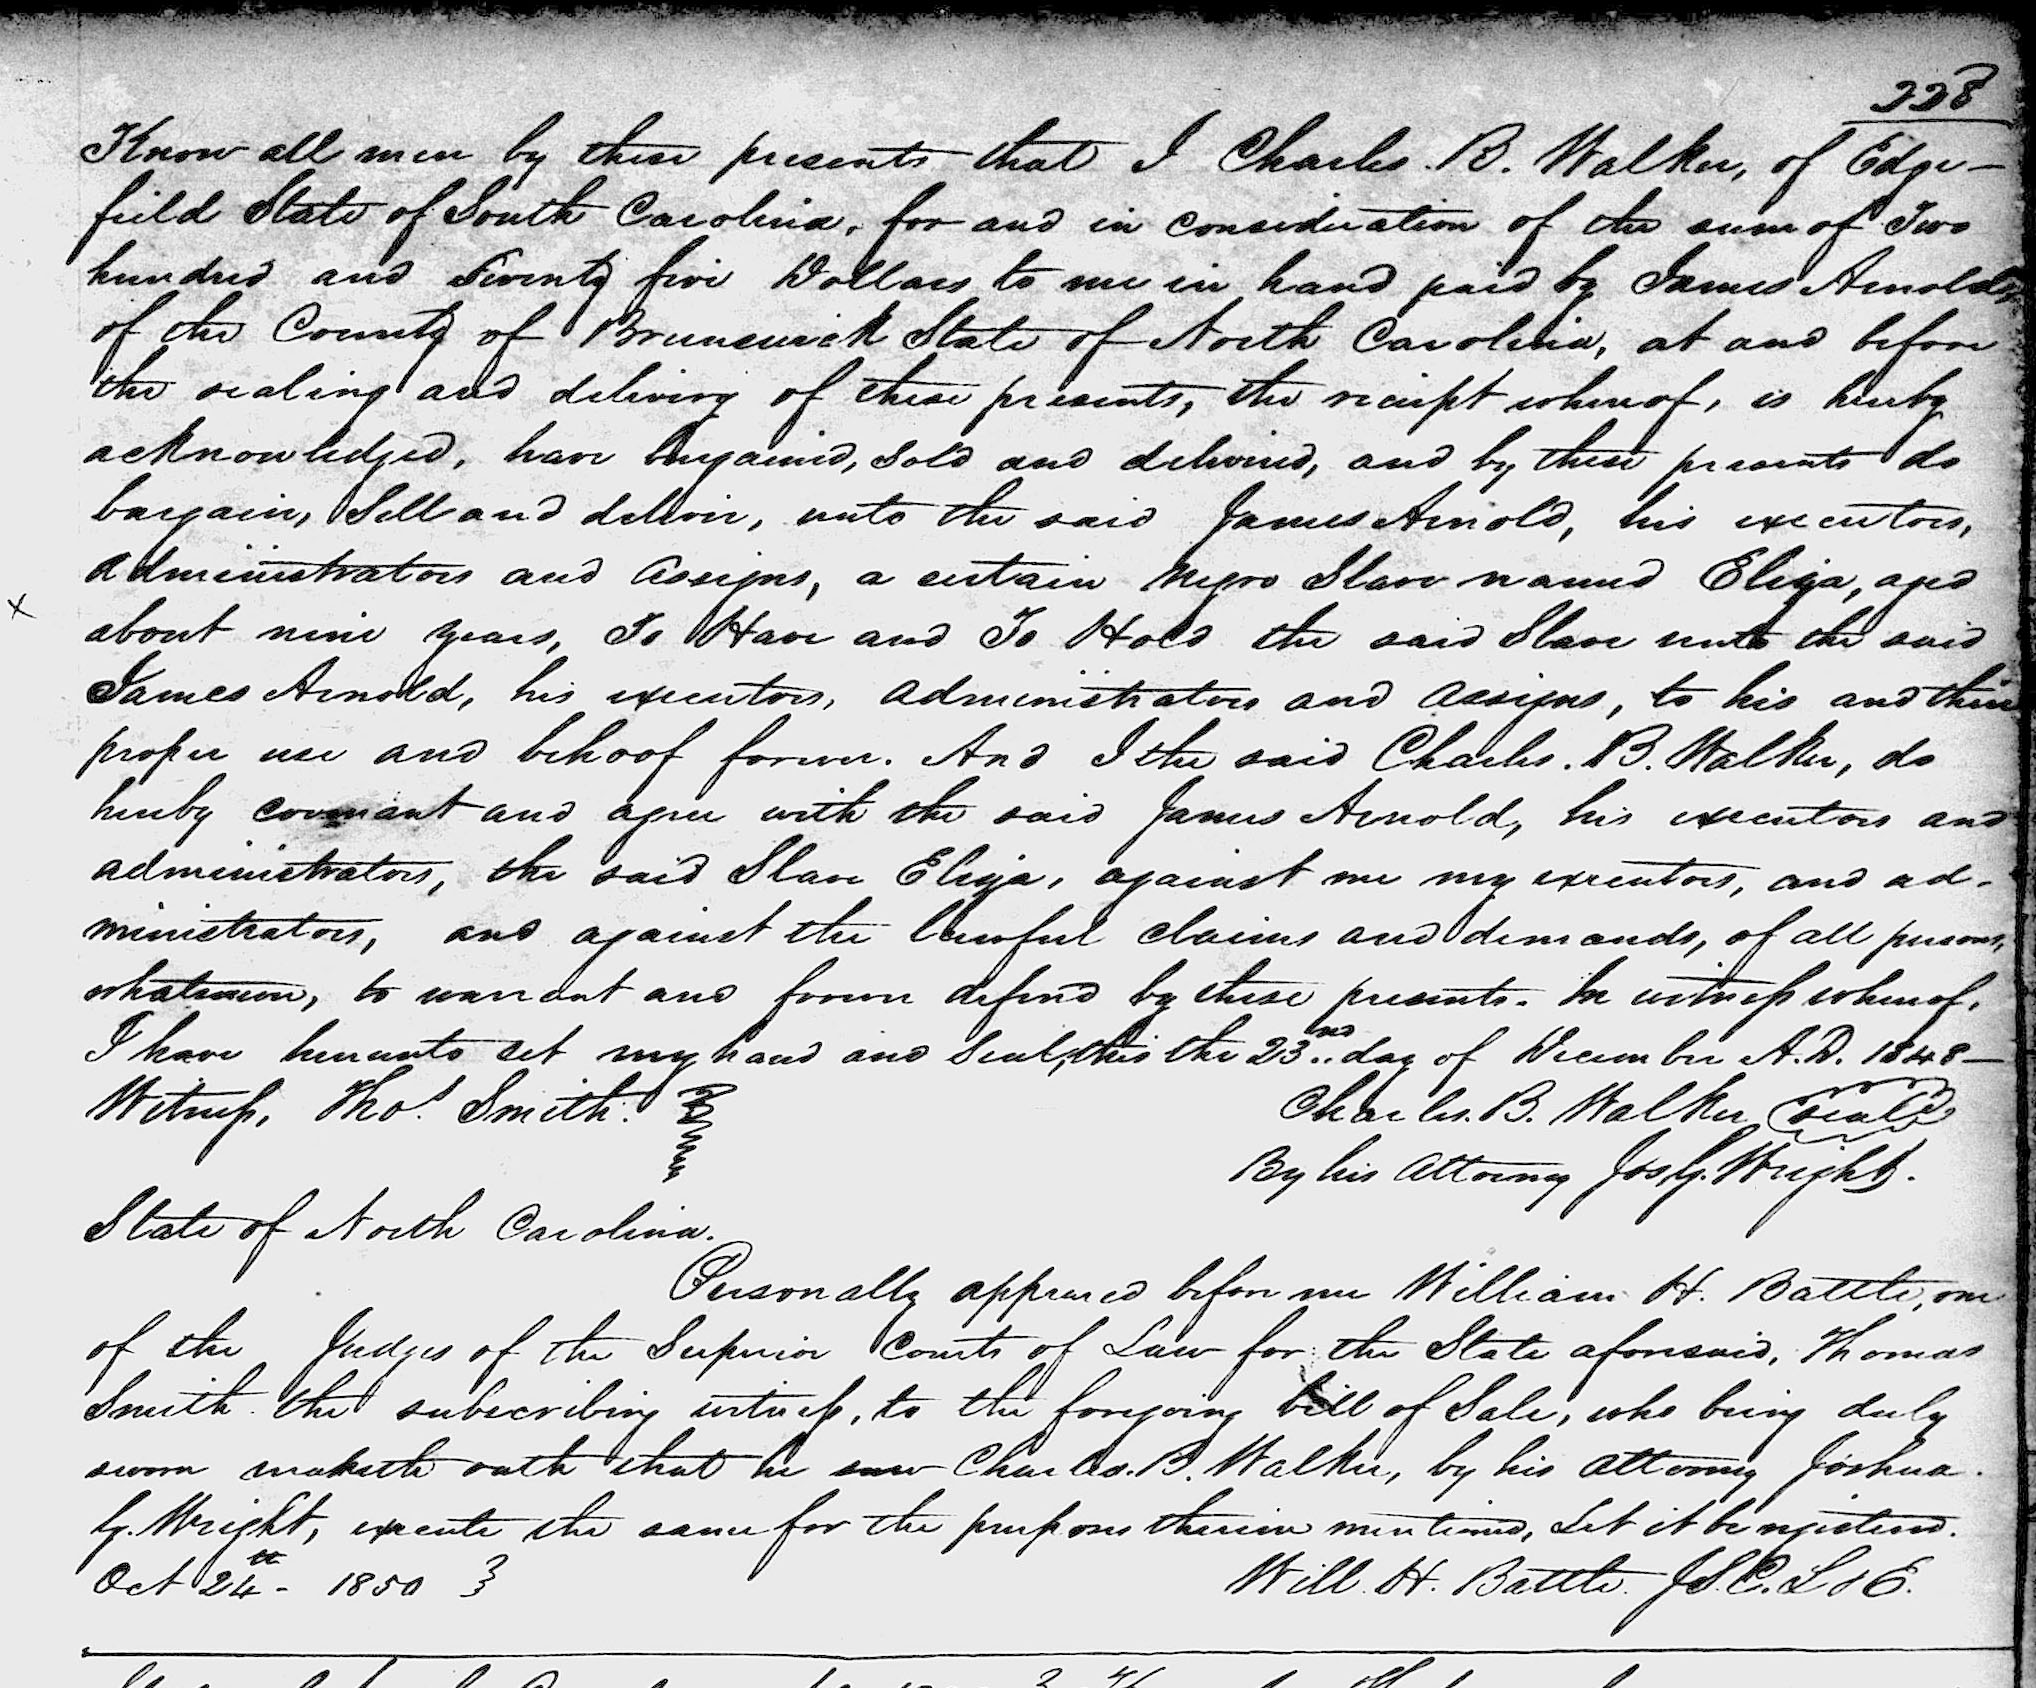 228
Know all men by these presents that I Charles. B. Walker, of Edge-
field State of South Carolina, for and in consideration of the sum of Two
hundred and Twenty five Dollars to me in hand paid by James Arnold
of the County of Brunswick State of North Carolina, at and before
the sealing and delivery of these presents, the receipt whereof, is hereby
acknowledged, have bargained, sold and delivered, and by these presents do
bargain, Sell and deliver, unto the said James Arnold, his executors,
administrators and assigns, a certain Negro Slave named Eliza, aged
x about nine years, To Have and To Hold the said Slave unto the said
James Arnold, his executors, administrators and assigns, to his and their
proper use and behoof forever. And I the said Charles. B. Walker, do
hereby covenant and agree with the said James Arnold, his executors and
administrators, the said Slave Eliza, against me my executors, and ad-
ministrators, and against the lawful claims and demands, of all persons,
whatsoever, to warrant and forever defend by these presents. In witness whereof,
I have hereunto set my hand and Seal, this the 23nd day of December A.D. 1848-
Witness, Thos Smith. Charles. B. Walker seal
By his Attorney Jos. G. Wright.
State of North Carolina.
Personally appeared before me William H. Battle, one
of the Judges of the Superior Courts of Law for the State aforesaid, Thomas
Smith the subscribing witness, to the foregoing bill of Sale, who being duly
sworn maketh oath that he saw Charles. B. Walker, by his attorney Joshua.
G. Wright, execute the same for the purposes therein mentioned, Let it be registered.
Oct 24th - 1850 } Will. H. Battle. J.S.C. L & E.